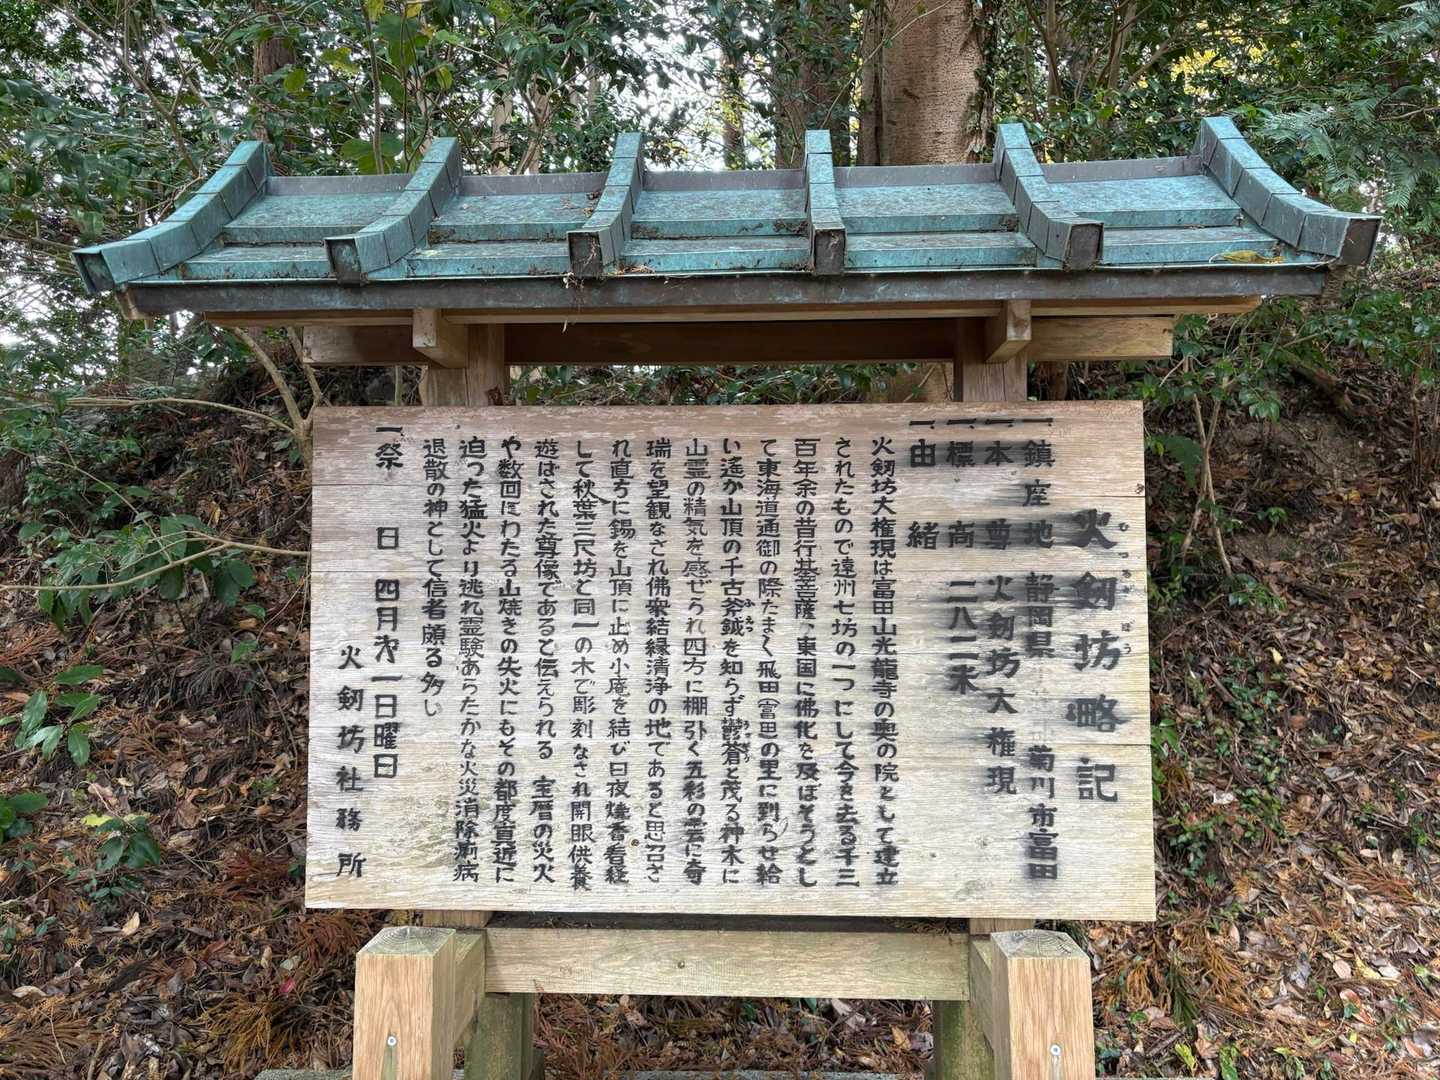 火剱坊略記
一鎮座地 静岡県 菊川市富田
一本尊 火剱坊大権現
一標高 二八二米
一由緒
火剱坊大権現は富田山光龍寺の奥の院として建立
されたもので遠州七坊の一つにして今を去る千三
百年余の昔行基菩薩、東国に佛化を及ぼそうとし
て東海道通御の際たま〱飛田(富田の里に到らせ給
い遙か山頂の千古斧鉞を知らず鬱蒼と茂る神木に
山霊の精気を感ぜられ四方に棚引く五彩の雲に奇
瑞を望観なされ佛衆結縁清浄の地であると思召さ
れ直ちに錫を山頂に止め小庵を結び日夜焼香看経
して秋葉三尺坊と同一の木で彫刻なされ開眼供養
遊ばされた尊像であると伝えられる 宝暦の災火
や数回にわたる山焼きの失火にもその都度真近に
迫った猛火より逃れ霊験あらたかな火災消除病
退散の神として信者頗る多し
一祭日 四月才一日曜日
火剱坊社務所